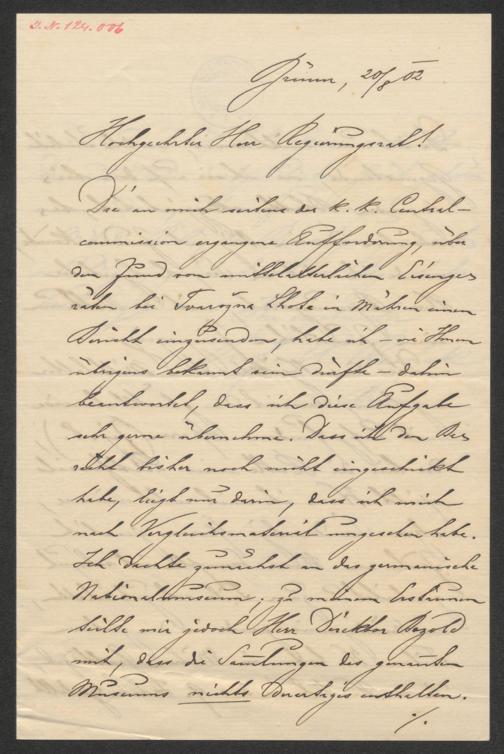 I. N. 124.006
Brünn, 20/8 02
Hochgeehrter Herr Regierungsrat!
Die an mich seitens der k. k. Central-
commission ergangene Aufforderung, über
den Fund von mittelalterlichen Eisenge-
räten bei Tvarožna Lhota in Mähren einen
Bericht einzusenden, habe ich – wie Ihnen
übrigens bekannt sein dürfte – dahin
beantwortet, dass ich diese Aufgabe
sehr gerne übernehme. Dass ich den Be-
richt bisher noch nicht eingeschickt
habe, liegt nur darin, dass ich mich
nach Vergleichsmaterial umgesehen habe.
Ich dachte zunächst an das germanische
Nationalmuseum; zu meinem Erstaunen
teilte mir jedoch Herr Direktor Bezold
mit, dass die Sammlungen des genannten
Museums nichts Derartiges enthalten.
./.